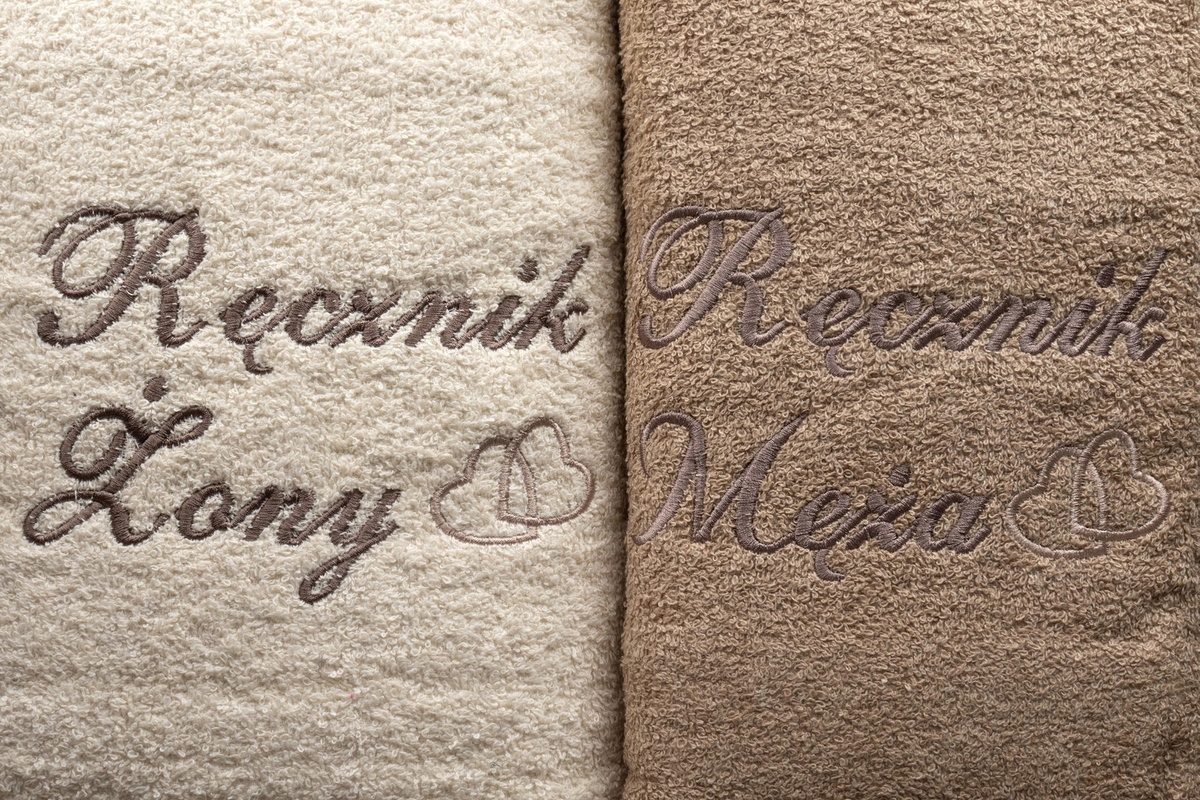 Ręcznik
Żony
Ręcznik
Męża